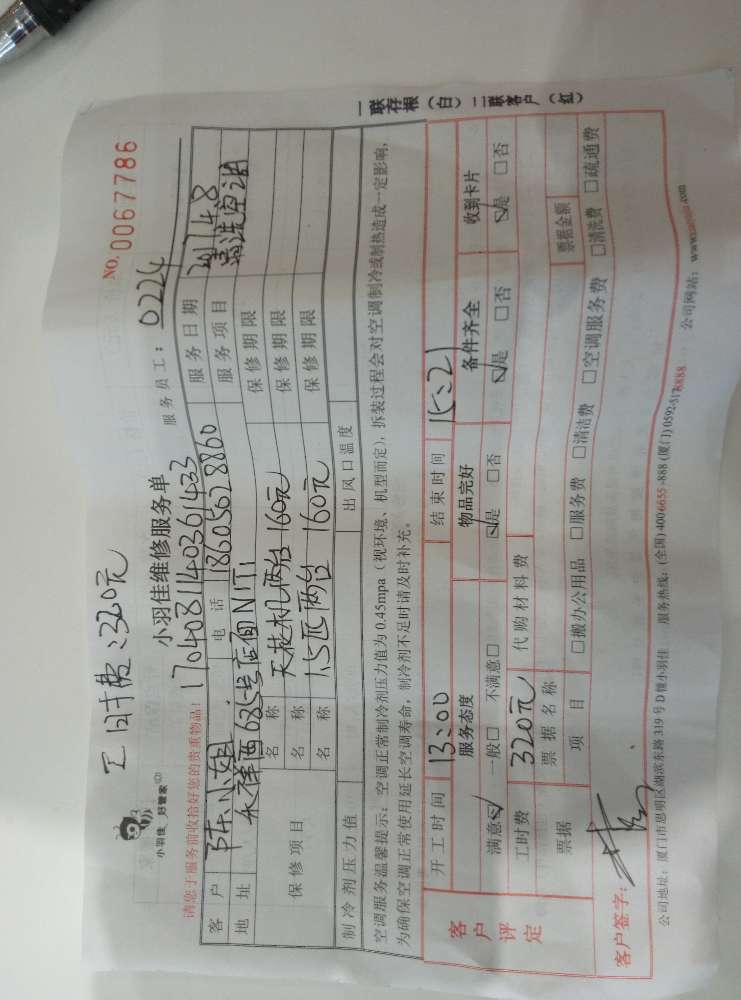 工时费:320元
小羽佳 好管家
小羽佳维修服务单
NO. 0067786
请您于服务前收拾好您的贵重物品!
170408140361433
服务员工: 0224
客户 陈小姐 电话 18605628860 服务日期 2017 4 8
地址 685号店面 服务项目 清洗空调
保修项目
名称 天花机两台 160元 保修期限
名称 1.5匹两台 160元 保修期限
名称 保修期限
制冷剂压力值 出风口温度
空调服务温馨提示:空调正常制冷剂压力值为 0.45mpa(视环境、机型而定),拆装过程会对空调制冷或制热造成一定影响,
为确保空调正常使用延长空调寿命,制冷剂不足时请及时补充。
客户评定
开工时间 13:00 结束时间 15:21
服务态度 物品完好 备件齐全 收到卡片
满意☑ 一般□ 不满意□ ☑是 □否 ☑是 □否 ☑是 □否
工时费 320元 代购材料费
票据 票据名称 票据金额
项目 □搬办公用品 □服务费 □清洁费 □空调服务费 □清洗费 □疏通费
客户签字:
公司地址:厦门市思明区湖滨东路 319 号 D 幢小羽佳 服务热线:(全国) 400 6655 -888 (厦门) 0592-5178888 公司网站:
一联存根(白) 二联客户(红)